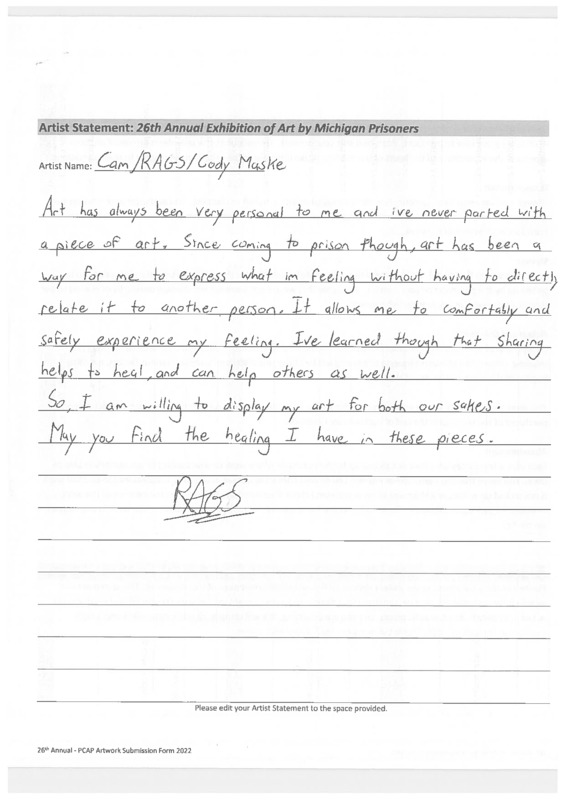 Artist Statement: 26th Annual Exhibition of Art by Michigan Prisoners
Artist Name: Cam/RAGS/Cody Muske
Art has always been very personal to me and ive never parted with
a piece of art. Since coming to prison though, art has been a
way for me to express what im feeling without having to directly
relate it to another person. It allows me to comfortably and
safely experience my feeling. Ive learned though that sharing
helps to heal, and can help others as well.
So, I am willing to display my art for both our sakes.
May you find the healing I have in these pieces.
RAGS
Please edit your Artist Statement to the space provided.
26th Annual - PCAP Artwork Submission Form 2022